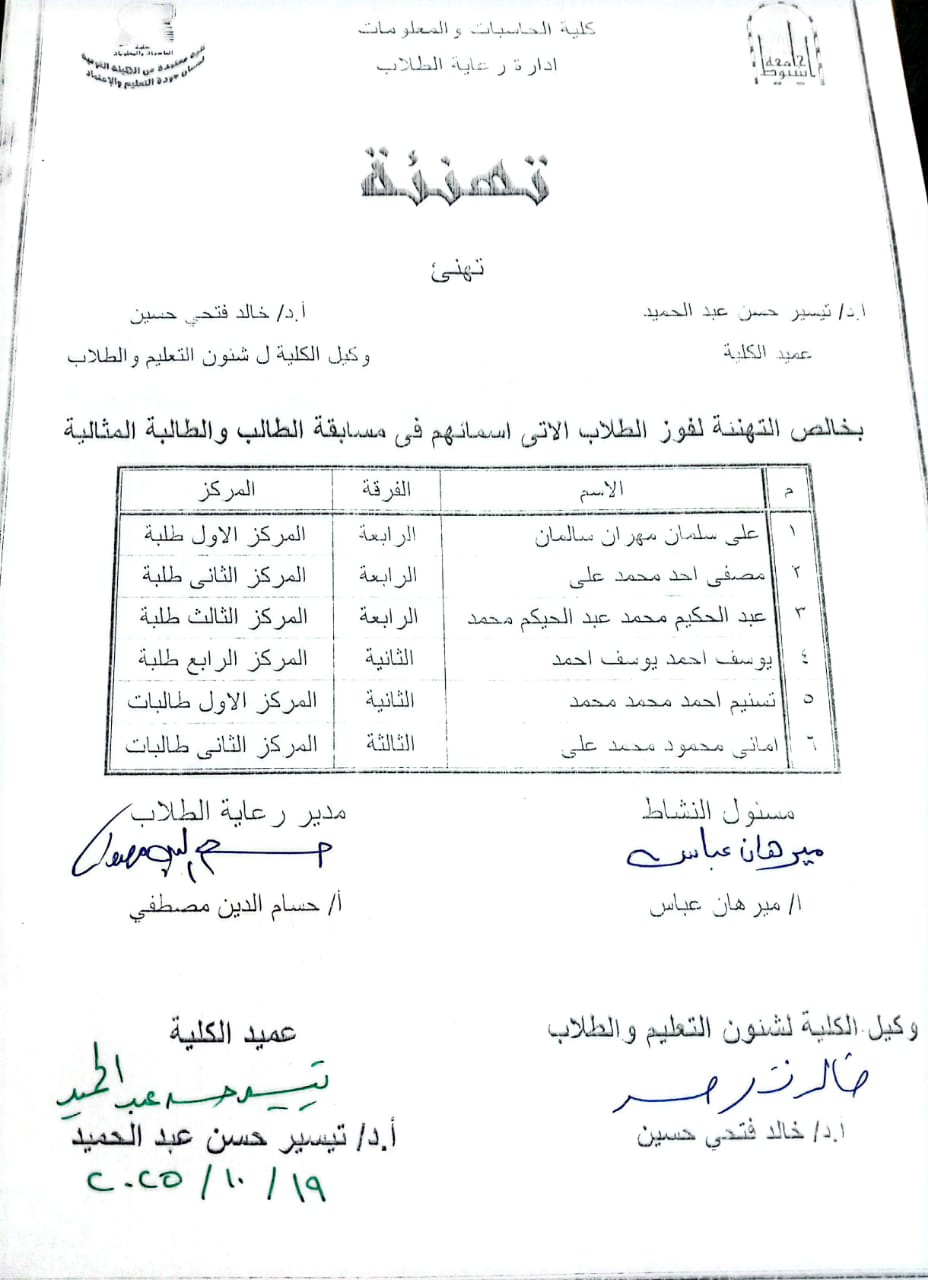 كلية الحاسبات والمعلومات
ادارة رعاية الطلاب
جامعة أسيوط
كلية
الحاسبات والمعلومات
كلية معتمدة من الهيئة القومية
لضمان جودة التعليم والإعتماد
تهنئة
تهنئ
ا.د/ تيسير حسن عبد الحميد أ.د/ خالد فتحي حسين
عميد الكلية وكيل الكلية ل شئون التعليم والطلاب
بخالص التهنئة لفوز الطلاب الاتى اسمائهم فى مسابقة الطالب والطالبة المثالية
م الاسم الفرقة المركز
١ على سلمان مهران سالمان الرابعة المركز الاول طلبة
٢ مصفى احد محمد على الرابعة المركز الثانى طلبة
٣ عبد الحكيم محمد عبد الحيكم محمد الرابعة المركز الثالث طلبة
٤ يوسف احمد يوسف احمد الثانية المركز الرابع طلبة
٥ تسنيم احمد محمد محمد الثانية المركز الاول طالبات
٦ امانى محمود محمد على الثالثة المركز الثانى طالبات
مسئول النشاط مدير رعاية الطلاب
ميرهان عباس
ا/ ميرهان عباس أ/ حسام الدين مصطفي
وكيل الكلية لشئون التعليم والطلاب عميد الكلية
خالد فتحي حسين تيسير حسن عبد الحميد
ا.د/ خالد فتحي حسين أ.د/ تيسير حسن عبد الحميد
١٩/ ١٠/ ٢٠٢٥